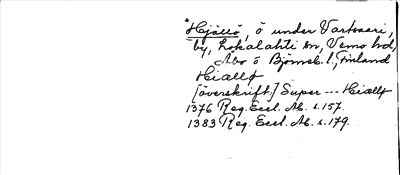 *Hjällö, ö under Vartsaari,
by, Lokalahti sn, Vemo hd,
Åbo o Björneb. l., Finland
Hiallø
[överskrift:] Super --- Hiallø
1376 Reg. Eccl. Ab. s. 157.
1383 Reg. Eccl. Ab. s. 179.